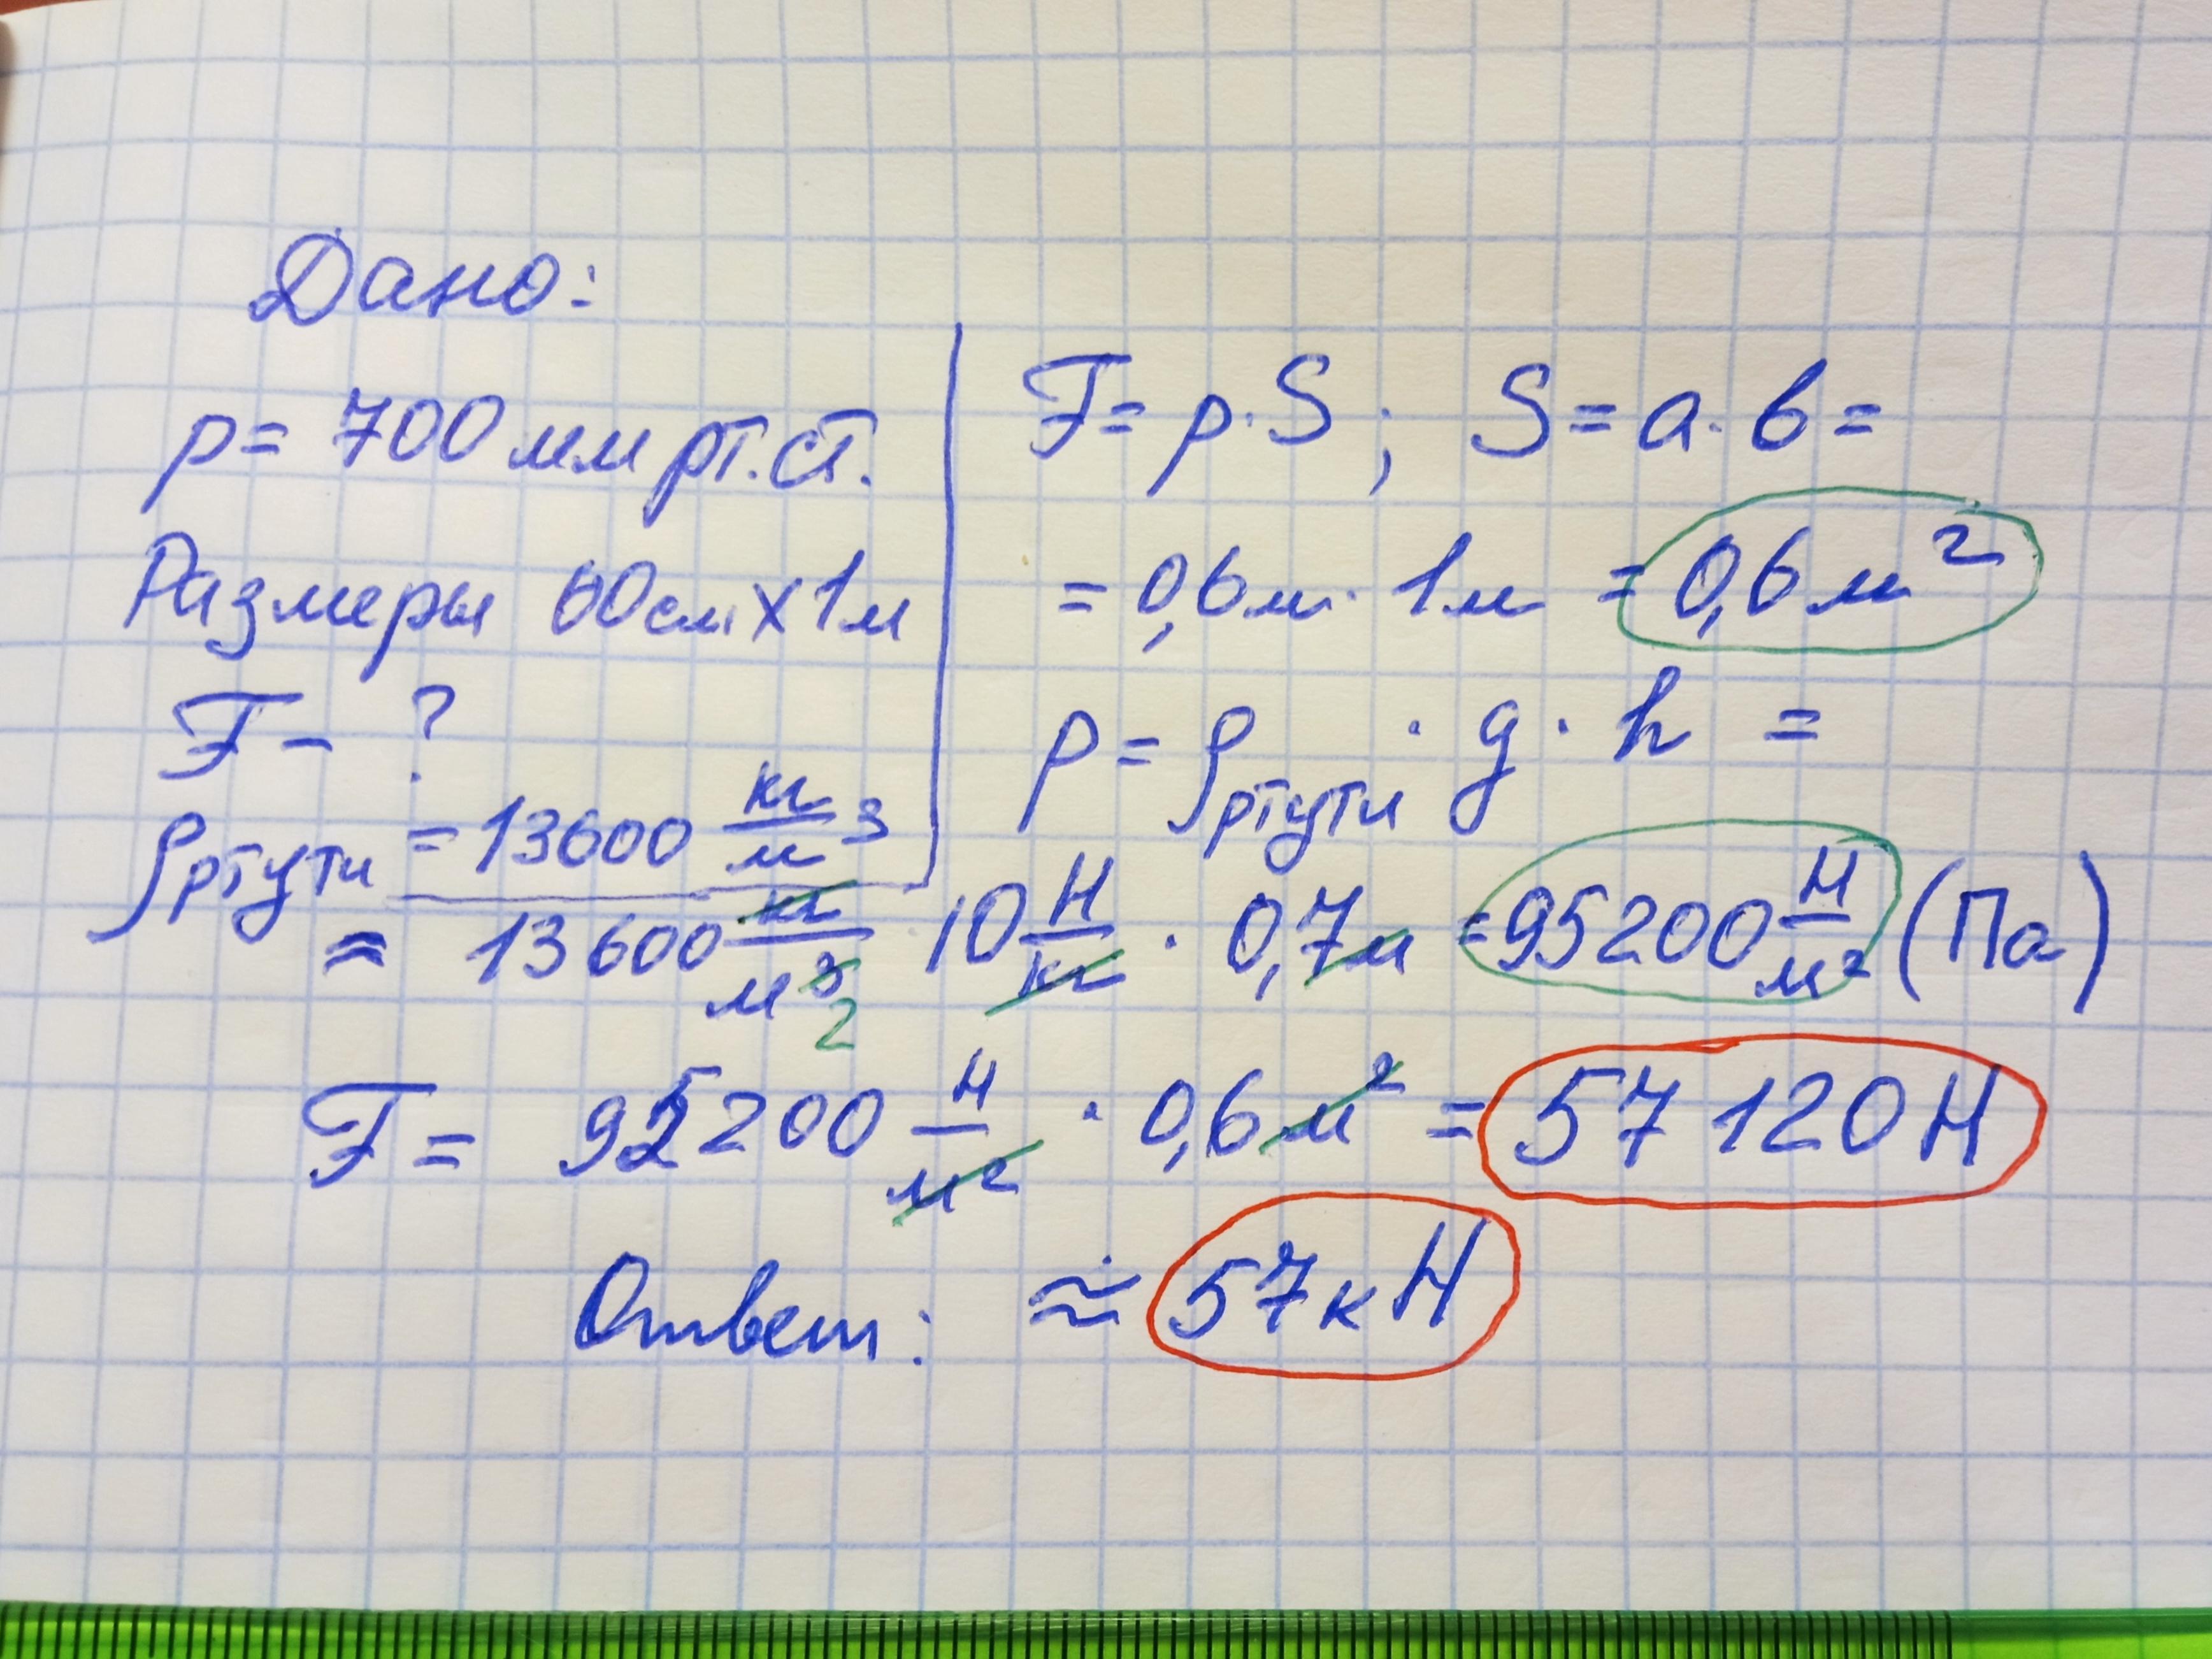 Дано:
p= 700 мм рт.ст.
Размеры 60см х 1м
F - ?
ρртути = 13600 кг/м³
F= p·S; S= a·b=
= 0,6м · 1м = 0,6м²
p= ρртути · g · h =
= 13600 кг/м³ 2 10 Н/кг · 0,7м =95200 Н/м² (Па)
F= 95200 Н/м² · 0,6м² = 57120Н
Ответ: ≈ 57кН